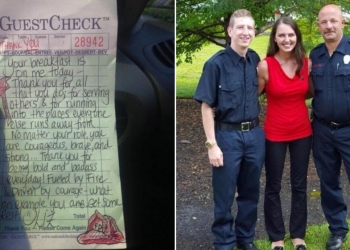 GUESTCHECK™
THANK YOU 28942
Your breakfast is
on me today -
Thank you for all
that you do; for serving
others & for running
into the places everyone
else runs away from.
No matter your role, you
are courageous, brave, and
strong. Thank you for
being bold and badass
everyday! Fueled by fire
driven by courage - what
an example you are. Get some
rest
Please Come Again